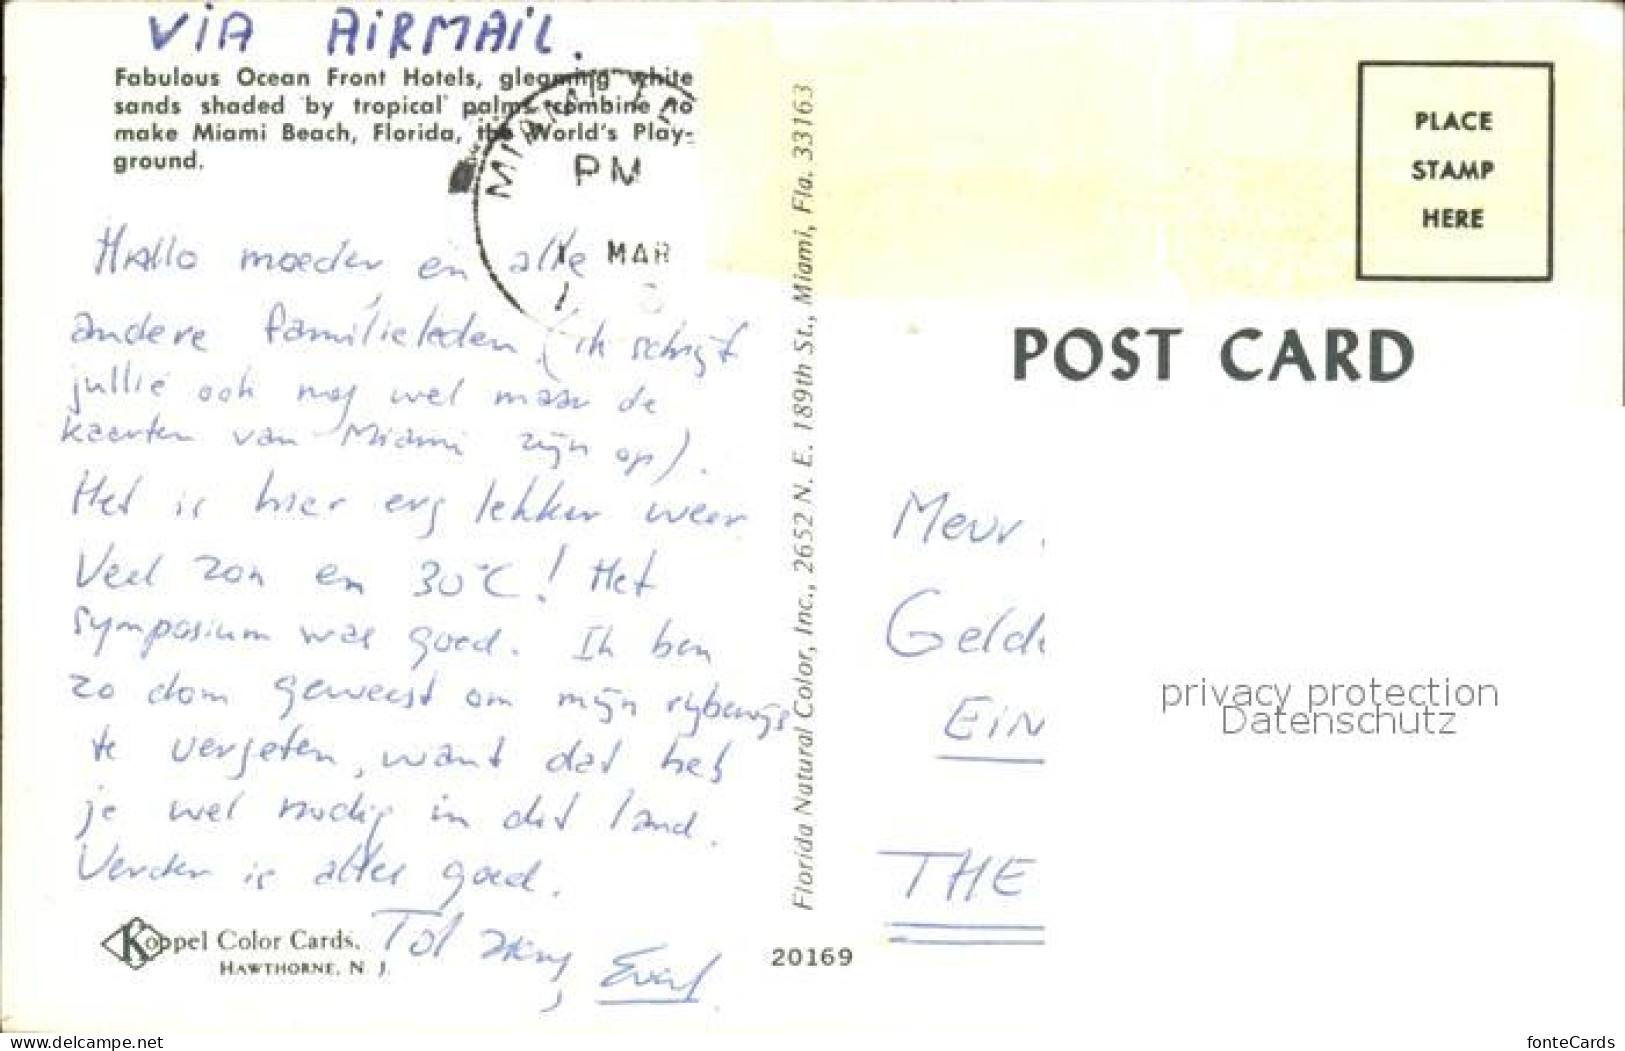 VIA AIRMAIL.
Fabulous Ocean Front Hotels, gleaming white
sands shaded by tropical palms combine to
make Miami Beach, Florida, the World's Play-
ground.
MIAMI
PM
MAR
Hallo moeder en alle
andere familieleden (ik schrijf
jullie ook nog wel maar de
kaarten van Miami zijn op).
Het is hier erg lekker weer
Veel zon en 30°C! Het
symposium was goed. Ik ben
zo dom geweest om mijn rijbewijs
te vergeten, want dat heb
je wel nodig in dit land.
Verder is alles goed.
Tot ziens,
Koppel Color Cards.
HAWTHORNE, N. J.
Florida Natural Color, Inc., 2652 N. E. 189th St., Miami, Fla. 33163
20169
PLACE
STAMP
HERE
POST CARD
Mevr.
Geld
EIN
THE
privacy protection
Datenschutz
www.delcampe.net
fonteCards